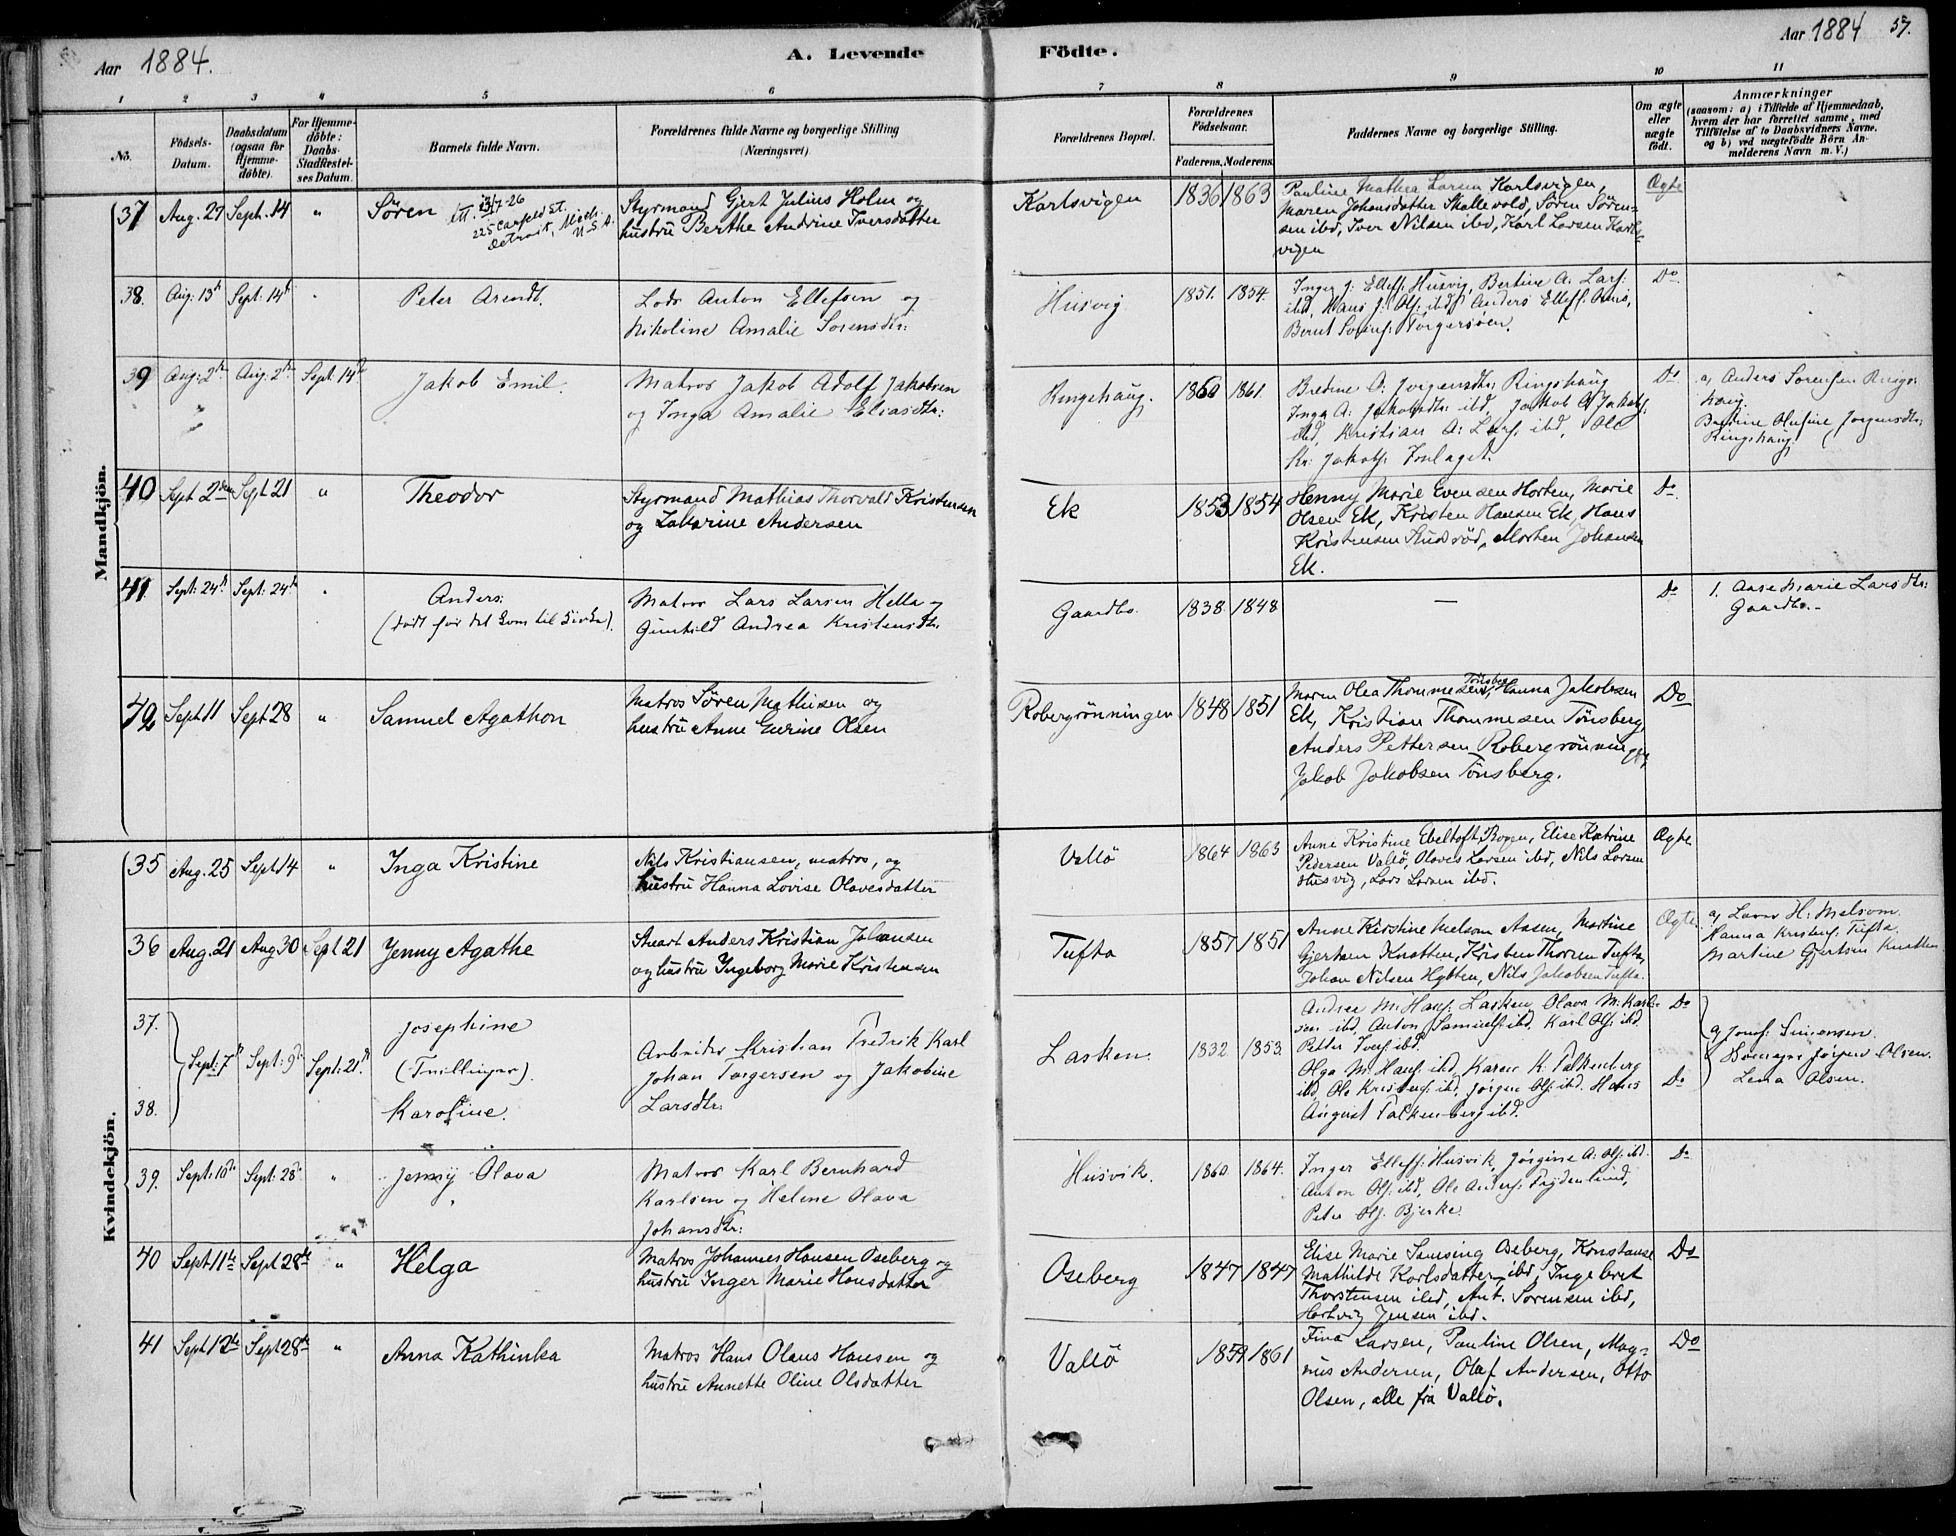 Aar 1884.
A. Levende Födte.
Aar 1884 57.
1 2 3 4 5 6 7 8 9 10 11
No.
Födsels-Datum.
Daabsdatum (ogsaa for Hjemme-döbte).
For Hjemme-döbte: Daabs-Stadfæstel-ses Datum.
Barnets fulde Navn.
Forældrenes fulde Navne og borgerlige Stilling (Næringsvei).
Forældrenes Bopæl.
Forældrenes Födselsaar.
Faderens. Moderens.
Faddernes Navne og borgerlige Stilling.
Om ægte eller uægte födt.
Anmærkninger
(saasom: a) i Tilfælde af Hjemmedaab,
hvem der har forrettet samme, med
Tilföielse af to Daabsvidners Navne,
og b) ved uægtefödte Börn An-
melderens Navn m. V.)
Mandkjön.
37 Aug. 27 Sept. 14 " Sören
-26
225 Canfield St.
Detroit, Mich.
U.S.A.
Styrmand Gjert Julius Holm og
hustru Berthe Andrine Iversdatter
Karlsvigen 1836 1863
Pauline Mathea Larsen Karlsvigen,
Maren Johansdatter Skallevold, Sören Sören-
sen ibd, Iver Nilsen ibd, Karl Larsen Karls-
vigen
Ægte
38. Aug: 13de Sept: 14de " Peter Arendt.
Lods Anton Ellefsen og
Nikoline Amalie Sörensdtr:
Husvig 1851. 1854.
Inger J: Ellefs: Husvig, Bertine A: Lars:
ibd, Hans J: Ols: ibd, Anders Ellefs:
Bernt Sörens: Torgersöen.
Do
39 Aug: 2de Aug: 2de Sept: 14de Jakob Emil.
Matros Jakob Adolf Jakobsen
og Inga Amalie Eliasdtr:
Ringshaug. 1860 1861.
Bredine O: Jörgensdtr: Ringshaug
Inga A: Jakobsdtr: ibd, Jakob A: Jakobs:
ibd, Kristian A: Lars: ibd, Ole
Kr: Jakobs:
Do
a, Anders Sörensen Rings-
haug.
Bredine Olufine Jörgensdtr:
Ringshaug
40 Sept 2den Sept 21 " Theodor
Styrmand Mathias Thorvald Kristensen
og Zakarine Andersen
Ek 1853 1854
Henny Marie Evensen Horten, Marie
Olsen Ek, Kristen Hansen Ek, Hans
Kristensen Husröd, Morten Johansen
Ek.
Do
41. Sept: 24de Sept: 24de " Anders:
(död för det kom til kirke).
Matros Lars Larsen Hella og
Gunhild Andrea Kristensdtr.
Gaardbo. 1838. 1848. — Do
1. Aase Marie Larsdtr:
Gaardbo.
42 Sept 11 Sept 28 " Samuel Agathon
Matros Sören Mathisen og
hustru Anne Gurine Olsen
Robergrönningen 1848 1851
Maren Olea Thommesen Tönsberg, Hanna Jakobsen
Ek, Kristian Thommesen Tönsberg,
Anders Pettersen Robergrönningen,
Jakob Jakobsen Tönsberg.
Do
Kvindekjön.
35 Aug. 25 Sept 14 " Inga Kristine
Nils Kristiansen, matros, og
hustru Hanna Lovise Olavesdatter
Vallö 1864 1863
Anne Kristine Ebeltoft Bogen, Elise Katrine
Pedersen Vallö, Olaves Larsen ibd, Nils Larsen
Husvig, Lars Larsen ibd.
Ægte
36 Aug. 21 Aug 30 Sept 21 Jenny Agathe
Stuart Anders Kristian Johansen
og hustru Ingeborg Marie Kristensen
Tufta 1857 1851
Anne Kirstine Melsom Aasen, Martine
Gjertsen Knatten, Kristen Thorsen Tufta,
Johan Nilsen Hytten, Nils Jakobsen Tufta.
Ægte
a, Laver H: Melsom.
Hanna Kristens: Tufta.
Martine Gjertsen Knatten
37. 38. Sept: 7de Sept: 9de Sept: 21de
Josephine
(Tvillinger).
Karoline.
Arbeider Kristian Fredrik Karl
Johan Torgersen og Jakobine
Larsdtr:
Lasken. 1832. 1853.
Andrea M: Hans: Lasken, Olava M: Karl-
sen ibd, Anton Samuels: ibd, Karl Ols: ibd.
Petter Ivers: ibd
Olga M: Hans: ibd, Karen K: Falkenberg
ibd, Ole Kristens: ibd, Jörgen Ols: ibd, Hans
August Falkenberg ibd.
Do
Do
a, Simonsen.
Jörgen Olsen.
Lena Olsen.
39. Sept: 10de Sept: 28de " Jenny Olava
Matros Karl Bernhard
Karlsen og Helene Olava
Johansdtr:
Husvik. 1860. 1864.
Inger Ellefs: Husvik, Jörgine A: Ols: ibd.
Anton Ols: ibd, Ole Anders: Frydenlund,
Peter Ols: Bjerke.
Do
40 Sept 11te Sept 28de " Helga
Matros Johannes Hansen Oseberg og
hustru Inger Marie Hansdatter
Oseberg 1847 1847
Elise Marie Samsing Oseberg, Konstanse
Mathilde Karlsdatter ibd, Ingebret
Thorstensen ibd, Ant. Sörensen ibd,
Hartvig Jensen ibd.
Do
41 Sept 12te Sept 28de " Anna Kathinka
Matros Hans Olaus Hansen og
hustru Annette Oline Olsdatter
Vallö 1859 1861
Fina Larsen, Pauline Olsen, Mag-
nus Andersen, Olaf Andersen, Otto
Olsen, alle fra Vallö.
Do